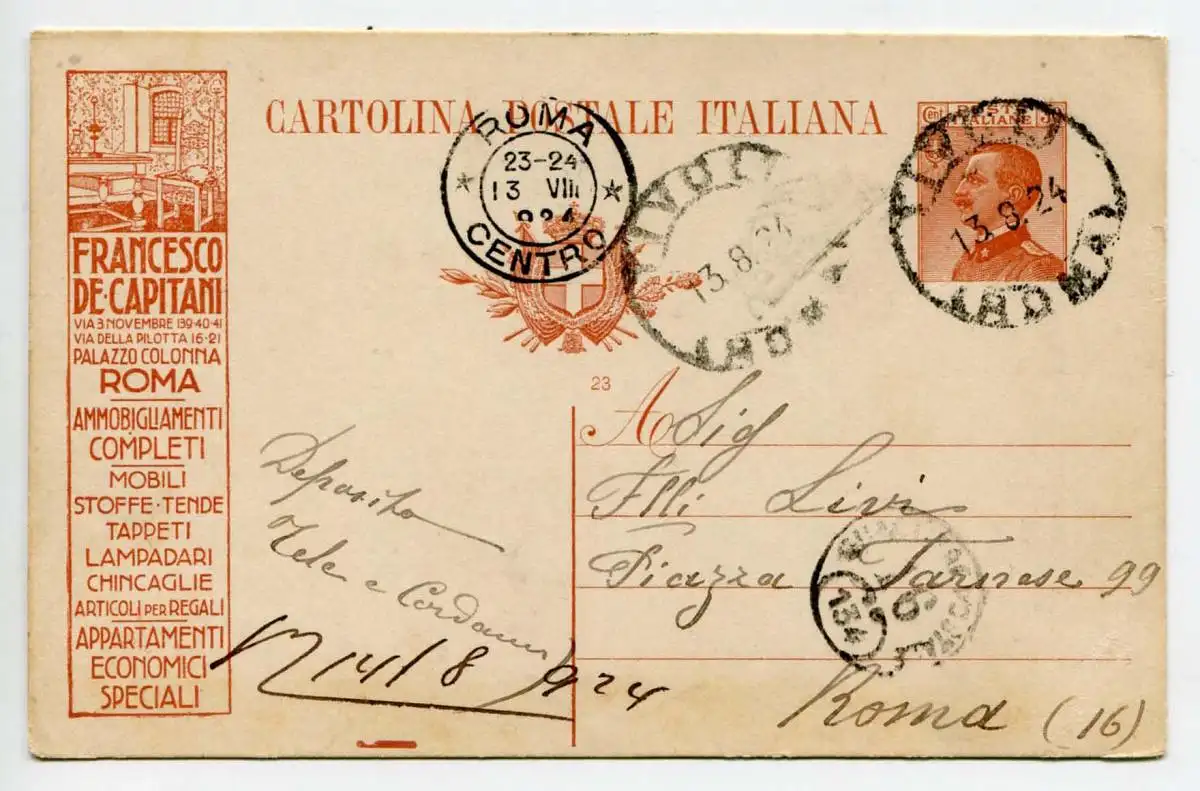 CARTOLINA POSTALE ITALIANA
Cent POSTE 30
ITALIANE
TIVOLI
13.8.24
(ROMA)
ROMA
23-24
13 VIII
924
CENTRO
TIVOLI
13.8.24
FRANCESCO
DE·CAPITANI
VIA 3 NOVEMBRE 139·40·41
VIA DELLA PILOTTA 16·21
PALAZZO COLONNA
ROMA
AMMOBIGLIAMENTI
COMPLETI
MOBILI
STOFFE·TENDE
TAPPETI
LAMPADARI
CHINCAGLIE
ARTICOLI PER REGALI
APPARTAMENTI
ECONOMICI
SPECIALI
23
A Sig
Flli Livi
Piazza Farnese 99
Roma (16)
134
Deposito
Tele e Cordami
14/8 924